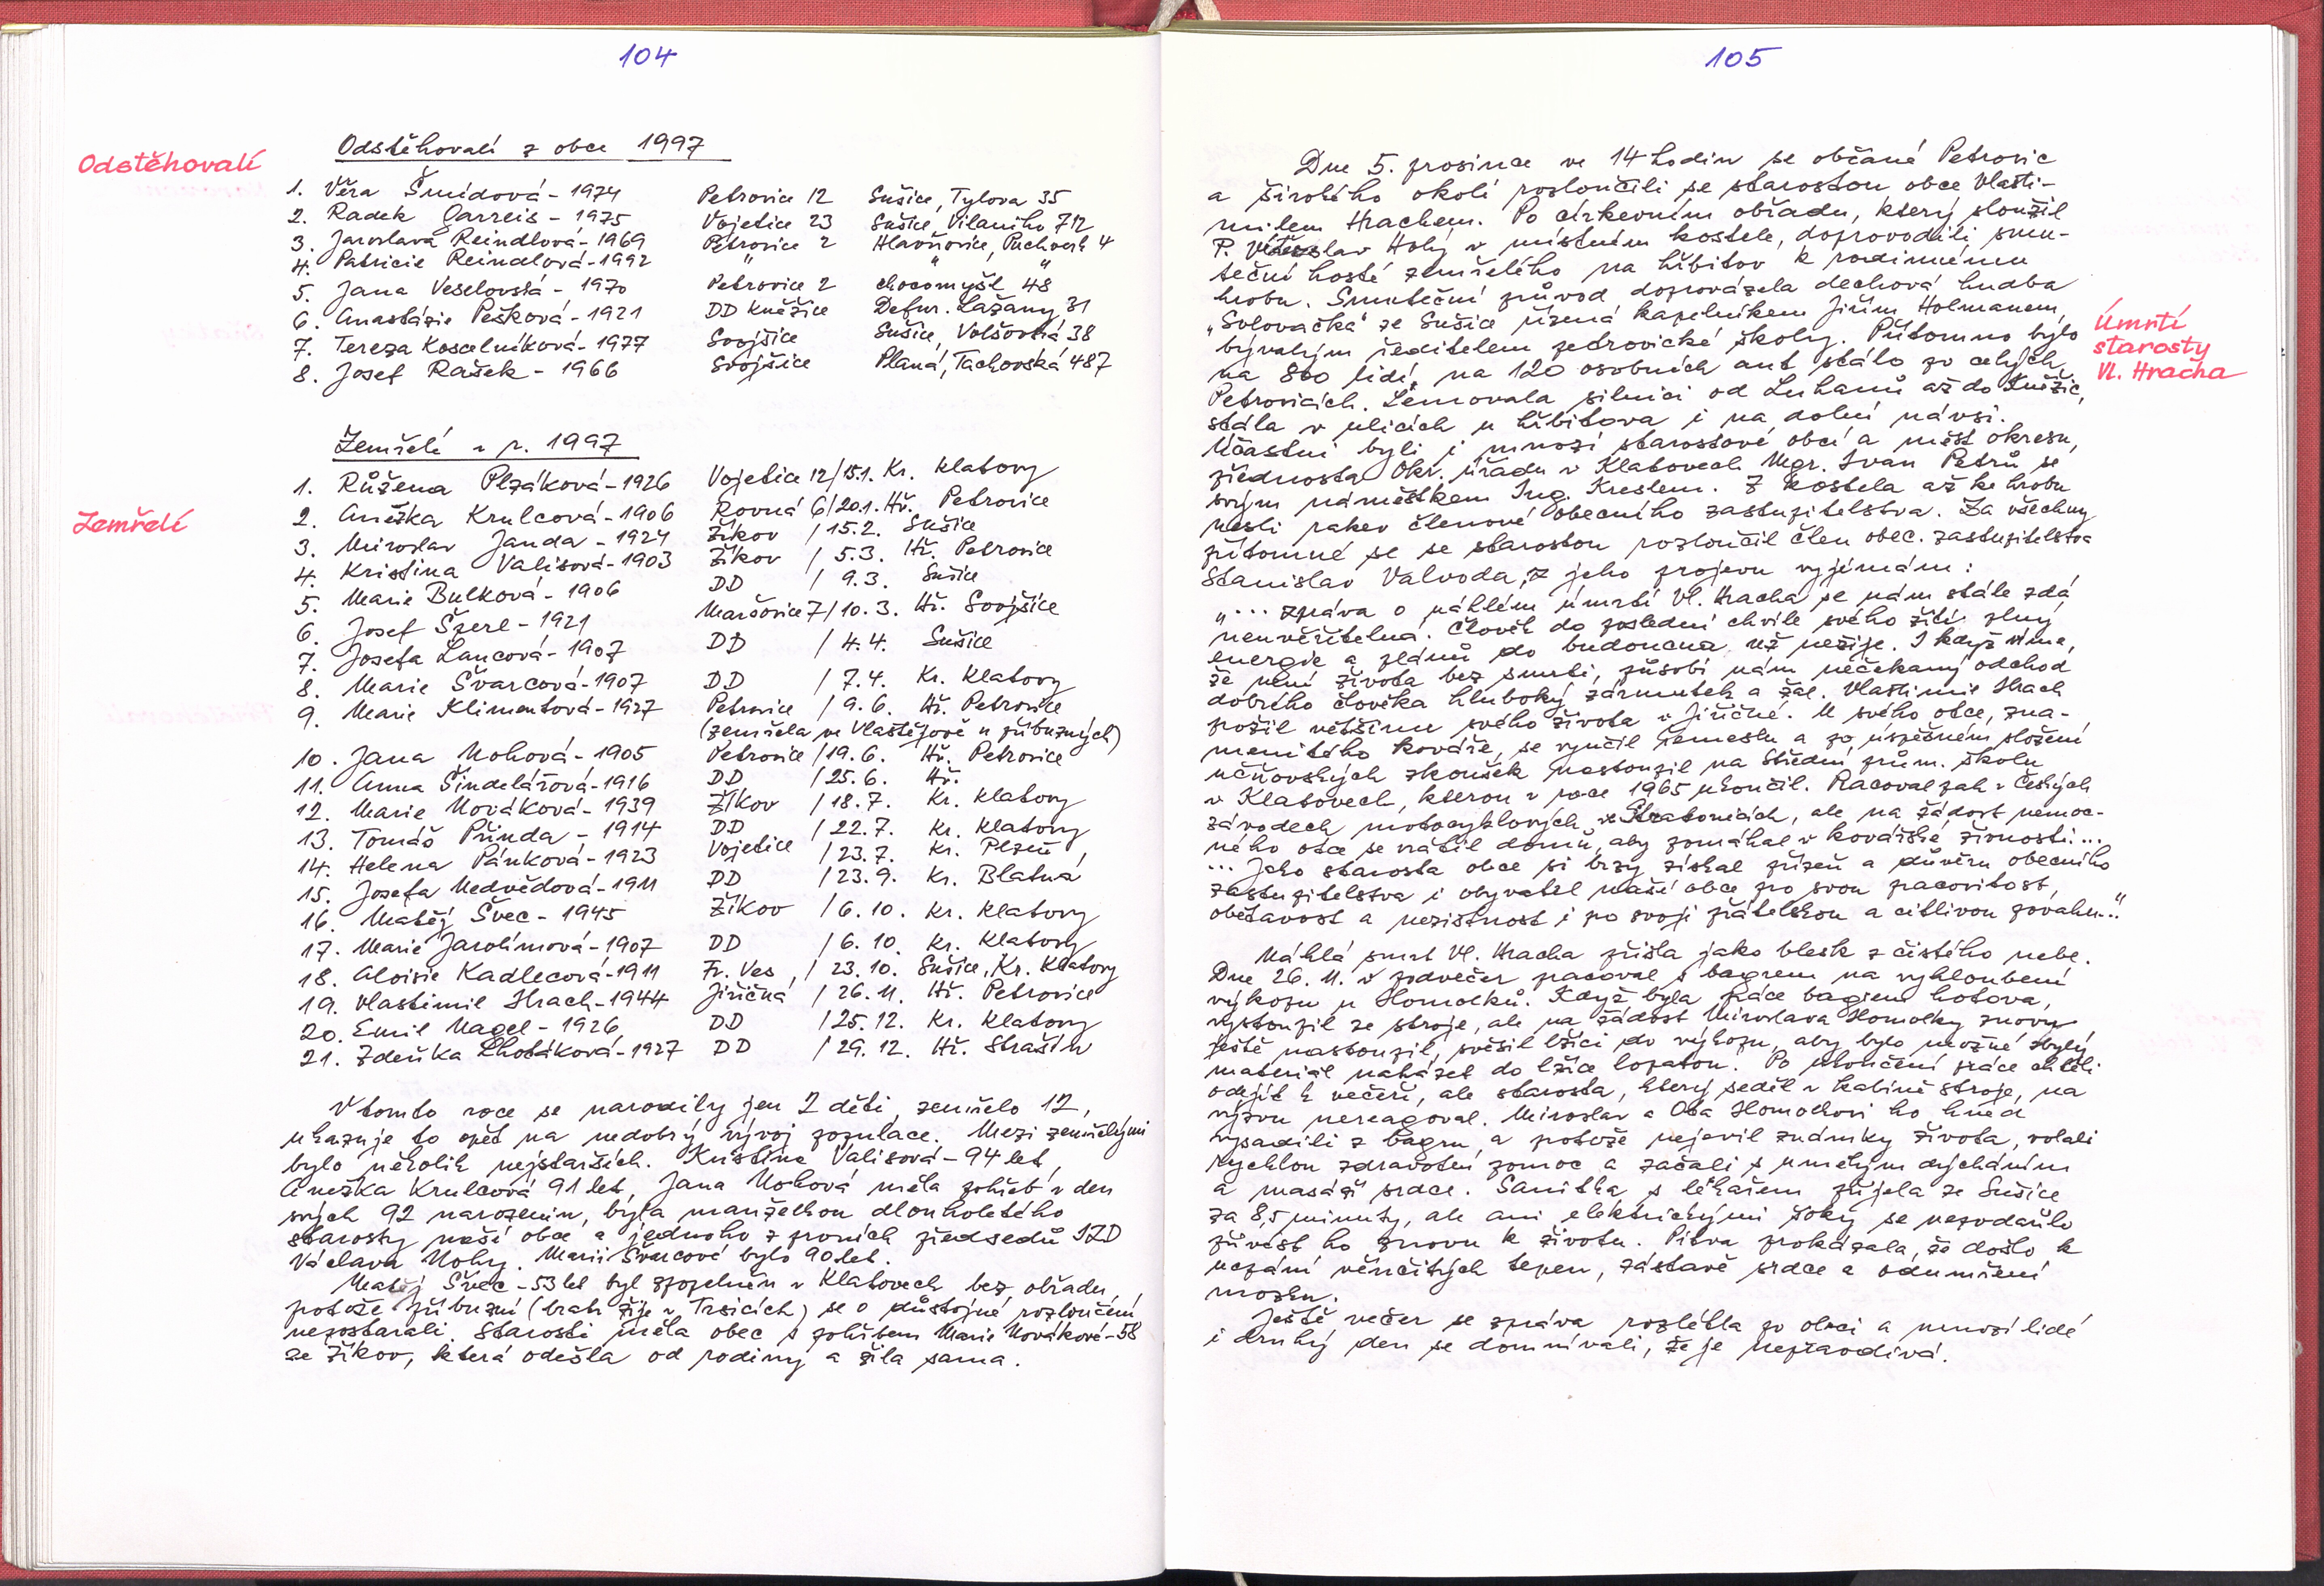 104
Odstěhovalí
Odstěhovalí z obce 1997
1. Věra Šmídová - 1974 Petrovice 12 Sušice, Tylova 35
2. Radek Garreis - 1975 Vojetice 23 Sušice, Villaniho 712
3. Jaroslava Reindlová - 1969 Petrovice 2 Hlavňovice, Puchverk 4
4. Patricie Reindlová - 1992 " " "
5. Jana Veselovská - 1970 Petrovice 2 Chocomyšl 48
6. Anastázie Pešková - 1921 DD Kněžice Defur. Lažany 31
7. Tereza Koscelníková - 1977 Svojšice Sušice, Volšovská 38
8. Josef Rašek - 1966 Svojšice Planá, Tachovská 487
Zemřelí
Zemřelí v r. 1997
1. Růžena Plzáková - 1926 Vojetice 12/15.1. Kr. Klatovy
2. Anežka Krulcová - 1906 Rovná 6/20.1. Hř. Petrovice
3. Miroslav Janda - 1924 Žíkov / 15.2. Sušice
4. Kristina Valisová - 1903 Žíkov / 5.3. Hř. Petrovice
5. Marie Bulková - 1906 DD / 9.3. Sušice
6. Josef Szerl - 1921 Maršovice 7/10.3. Hř. Svojšice
7. Josefa Lancová - 1907 DD / 4.4. Sušice
8. Marie Švarcová - 1907 DD / 7.4. Kr. Klatovy
9. Marie Klimentová - 1927 Petrovice / 9.6. Hř. Petrovice
(zemřela ve Vlastějově u příbuzných)
10. Jana Nohová - 1905 Petrovice / 19.6. Hř. Petrovice
11. Anna Šindelářová - 1916 DD / 25.6. Hř.
12. Marie Nováková - 1939 Žíkov / 18.7. Kr. Klatovy
13. Tomáš Přinda - 1914 DD / 22.7. Kr. Klatovy
14. Helena Pánková - 1923 Vojetice / 23.7. Kr. Plzeň
15. Josefa Nedvědová - 1911 DD / 23.9. Kr. Blatná
16. Matěj Švec - 1945 Žíkov / 6.10. Kr. Klatovy
17. Marie Jarolímová - 1907 DD / 6.10. Kr. Klatovy
18. Aloisie Kadlecová - 1911 Fr. Ves, / 23.10. Sušice, Kr. Klatovy
19. Vlastimil Hrach - 1944 Jiřičná / 26.11. Hř. Petrovice
20. Emil Nagel - 1926 DD / 25.12. Kr. Klatovy
21. Zdeňka Lhotáková - 1927 DD / 29.12. Hř. Strašín
V tomto roce se narodily jen 2 děti, zemřelo 12,
ukazuje to opět na nedobrý vývoj populace. Mezi zemřelými
bylo několik nejstarších. Kristina Valisová - 94 let,
Anežka Krulcová 91 let, Jana Nohová měla pohřeb v den
svých 92 narozenin, byla manželkou dlouholetého
starosty naší obce a jednoho z prvních předsedů JZD
Václava Nohy. Marii Švarcové bylo 90 let.
Matěj Švec - 53 let byl zpopelněn v Klatovech bez obřadu,
protože příbuzní (bratr žije v Trsicích) se o důstojné rozloučení
nepostarali. Starosti měla obec s pohřbem Marie Novákové - 58
ze Žíkov, která odešla od rodiny a žila sama.
105
Dne 5. prosince ve 14 hodin se občané Petrovic
a širokého okolí rozloučili se starostou obce Vlasti-
milem Hrachem. Po církevním obřadu, který sloužil
P. Vítězslav Holý v místním kostele, doprovodili smu-
teční hosté zemřelého na hřbitov k rodinnému
hrobu. Smuteční průvod doprovázela dechová hudba
„Solovačka" ze Sušice řízená kapelníkem Jiřím Holmanem,
bývalým ředitelem petrovické školy. Přítomno bylo
na 800 lidí, na 120 osobních aut stálo po celých
Petrovicích. Lemovala silnici od Luhanů až do Kněžic,
stála v ulicích u hřbitova i na dolní návsi.
Účastni byli i mnozí starostové obcí a měst okresu,
přednosta Okr. úřadu v Klatovech Mgr. Ivan Petrů se
svým náměstkem Ing. Kreslem. Z kostela až ke hrobu
nesli rakev členové obecního zastupitelstva. Za všechny
přítomné se se starostou rozloučil člen obec. zastupitelstva
Stanislav Valvoda, z jeho projevu vyjímám:
„... zpráva o náhlém úmrtí Vl. Hracha se nám stále zdá
neuvěřitelná. Člověk do poslední chvíle svého žití plný
energie a plánů do budoucna už nežije. I když víme,
že není života bez smrti, působí nám nečekaný odchod
dobrého člověka hluboký zármutek a žal. Vlastimil Hrach
prožil většinu svého života v Jiřičné. U svého otce, zna-
menitého kováře, se vyučil řemeslu a po úspěšném složení
učňovských zkoušek nastoupil na Střední prům. školu
v Klatovech, kterou v roce 1965 ukončil. Pracoval pak v Českých
závodech motocyklových ve Strakonicích, ale na žádost nemoc-
ného otce se vrátil domů, aby pomáhal v kovářské živnosti...
... Jako starosta obce si brzy získal přízeň a důvěru obecního
zastupitelstva i obyvatel naší obce pro svou pracovitost,
obětavost a nezištnost i pro svoji přátelskou a citlivou povahu..."
Náhlá smrt Vl. Hracha přišla jako blesk z čistého nebe.
Dne 26. 11. v podvečer pracoval s bagrem na vyhloubení
výkopu u Homolků. Když byla práce bagrem hotova,
vystoupil ze stroje, ale na žádost Miroslava Homolky znovu
ještě nastoupil, svěsil lžíci do výkopu, aby bylo možné zbylý
materiál naházet do lžíce lopatou. Po ukončení práce chtěli
odejít k večeři, ale starosta, který seděl v kabině stroje, na
výzvu nereagoval. Miroslav a Ota Homolkovi ho hned
vysadili z bagru, a protože nejevil známky života, volali
rychlou zdravotní pomoc a začali s umělým dýcháním
a masáží srdce. Sanitka s lékařem přijela ze Sušice
za 8,5 minuty, ale ani elektrickými šoky se nepodařilo
přivést ho znovu k životu. Pitva prokázala, že došlo k
ucpání věnčitých tepen, zástavě srdce a odumření
mozku.
Ještě večer se zpráva rozlétla po obci a mnozí lidé
i druhý den se domnívali, že je nepravdivá.
Úmrtí
starosty
Vl. Hracha